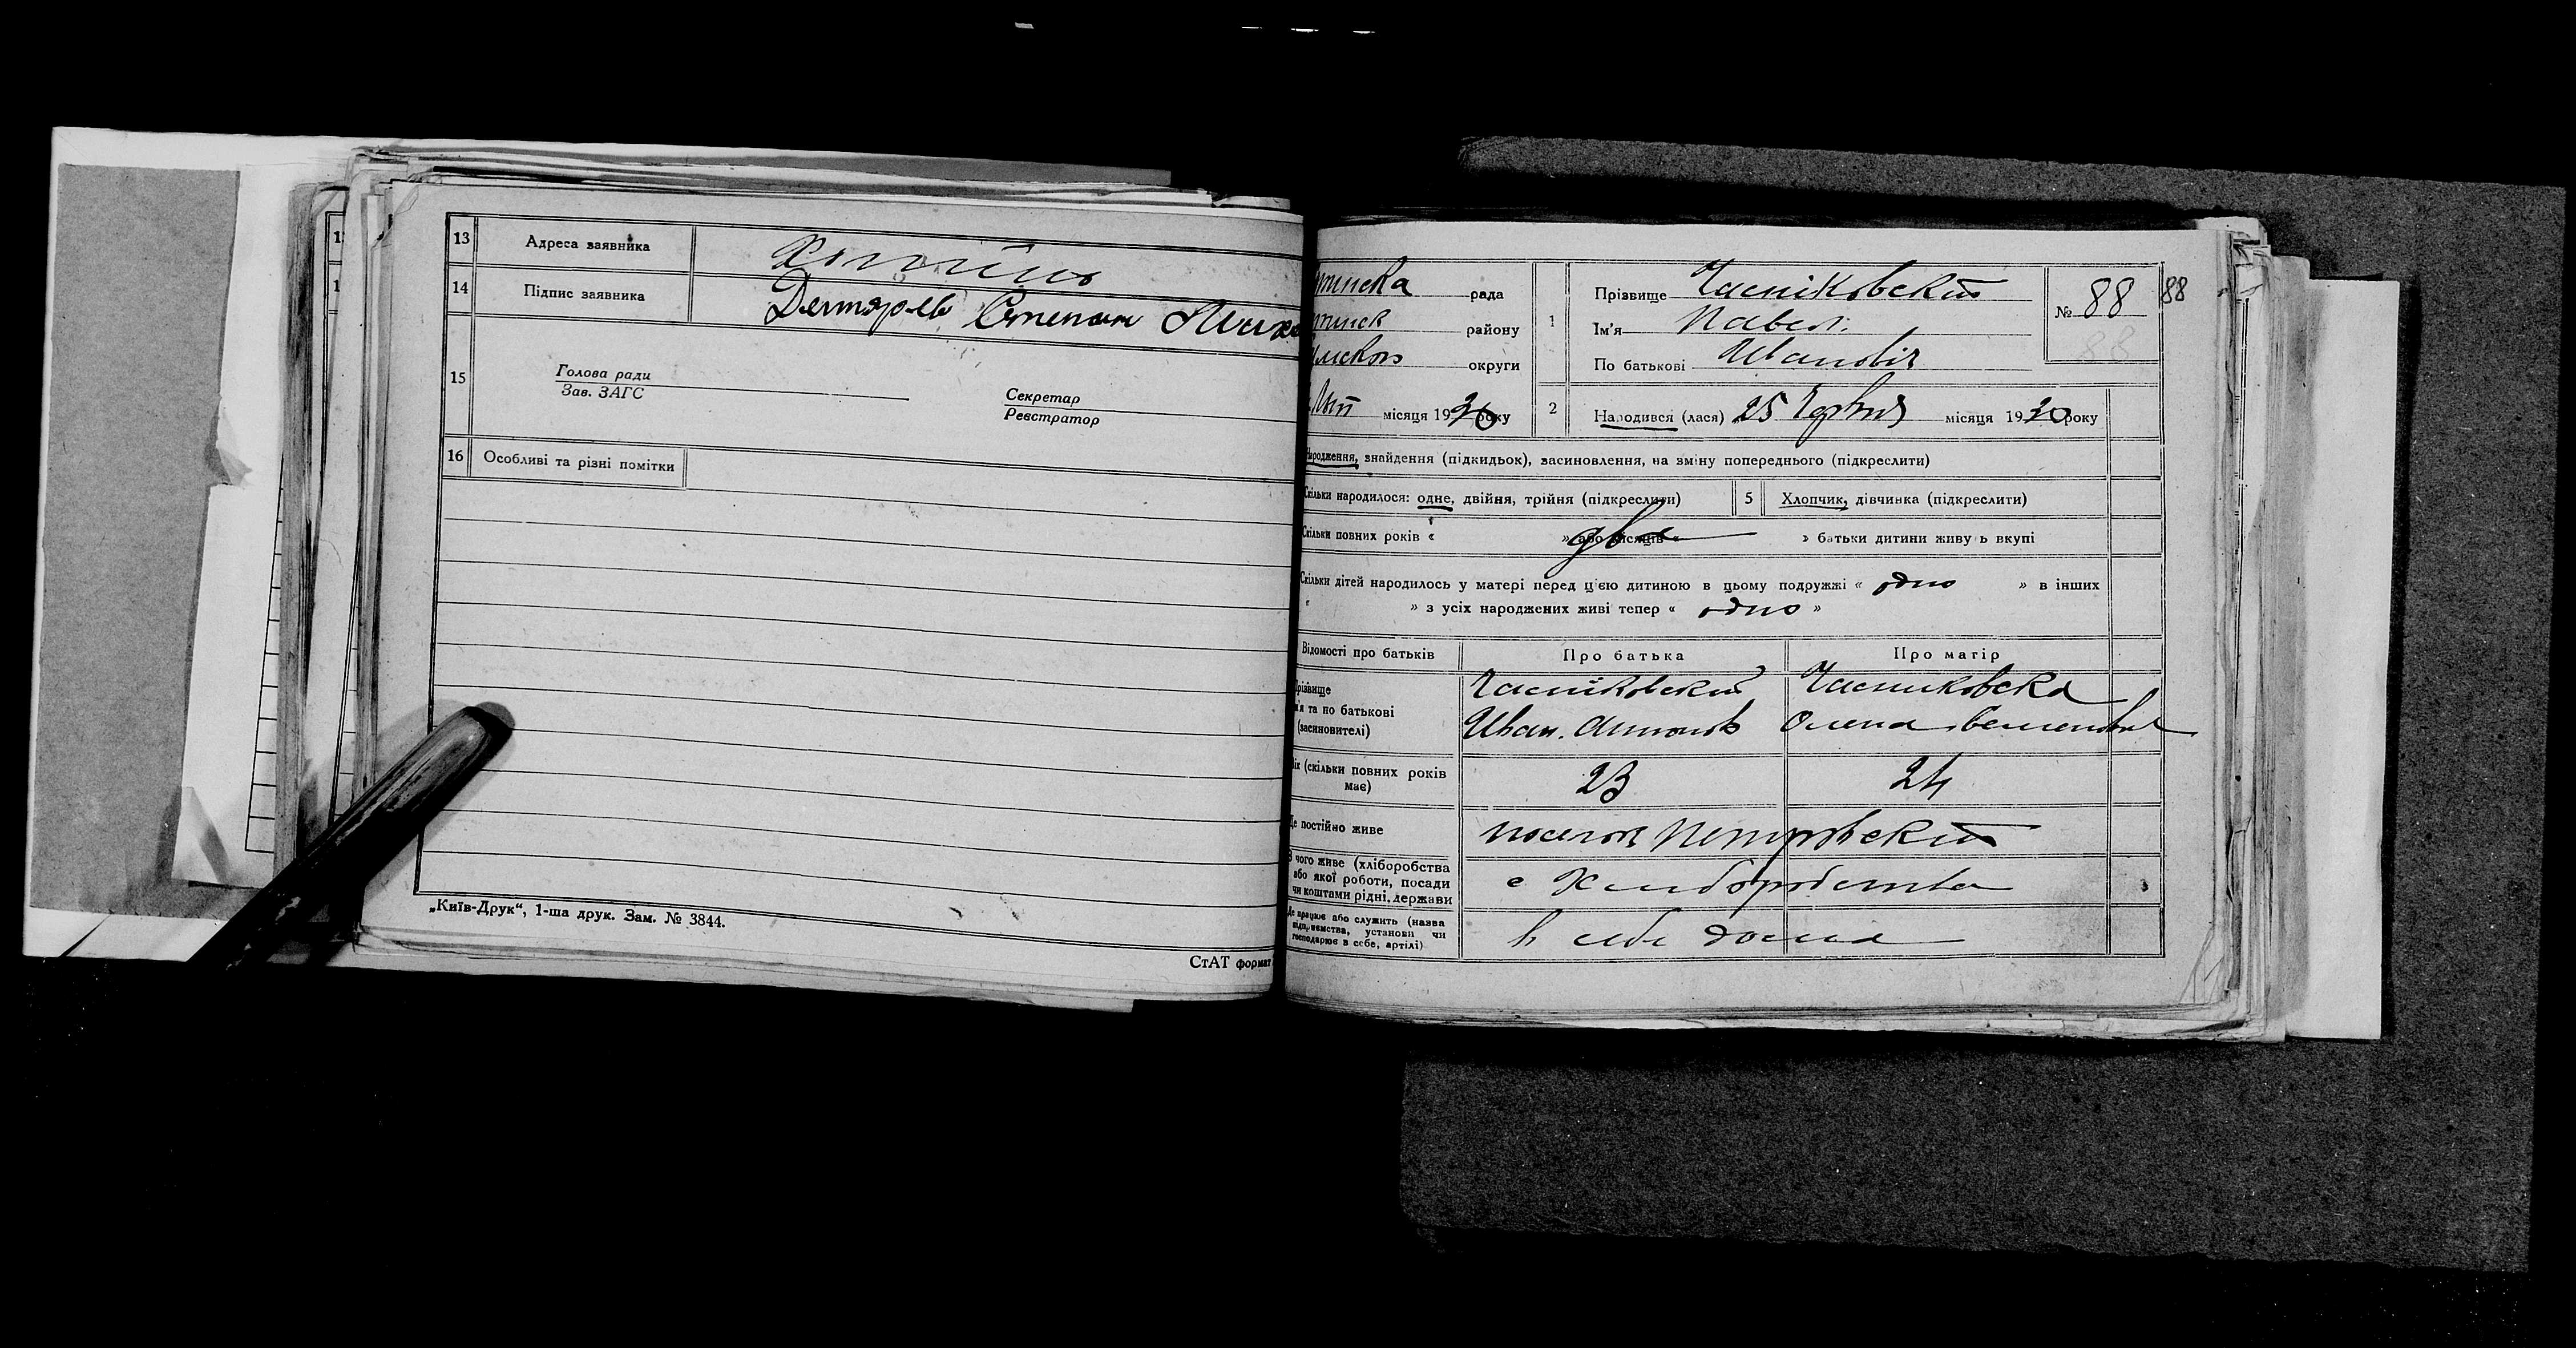 13 Адреса заявника Хотінь
14 Підпис заявника Дегтярев Степан
15 Голова ради
Зав. ЗАГС
Секретар
Реєстратор
16 Особливі та різні помітки
„Київ-Друк“, 1-ша друк. Зам. № 3844.
СтАТ формат
рада
району
округи
місяця 1930 року
1 Прізвище Часніковский
Ім'я Павел.
По батькові Иванович
№ 88 88
88
2 Народився (лася) 25 Червня місяця 1930 року
Народження, знайдення (підкидьок), засиновлення, на зміну попереднього (підкреслити)
Скільки народилося: одне, двійня, трійня (підкреслити) 5 Хлопчик, дівчинка (підкреслити)
Скільки повних років « два » або місяців « » батьки дитини живуть вкупі
Скільки дітей народилось у матері перед цією дитиною в цьому подружжі « одно » в інших
« » з усіх народжених живі тепер « одно »
Відомості про батьків Про батька Про матір
Прізвище Часніковский Часниковска
ім'я та по батькові Иван. Антонов Олена Семеновна
(засиновителі)
Вік (скільки повних років має) 23 24
Де постійно живе поселок Петровский
З чого живе (хліборобства
або якої роботи, посади с Хлиборобства
чи коштами рідні, держави
Де працює або служить (назва
підприємства, установи чи в себе дома
господарює в себе, артілі)